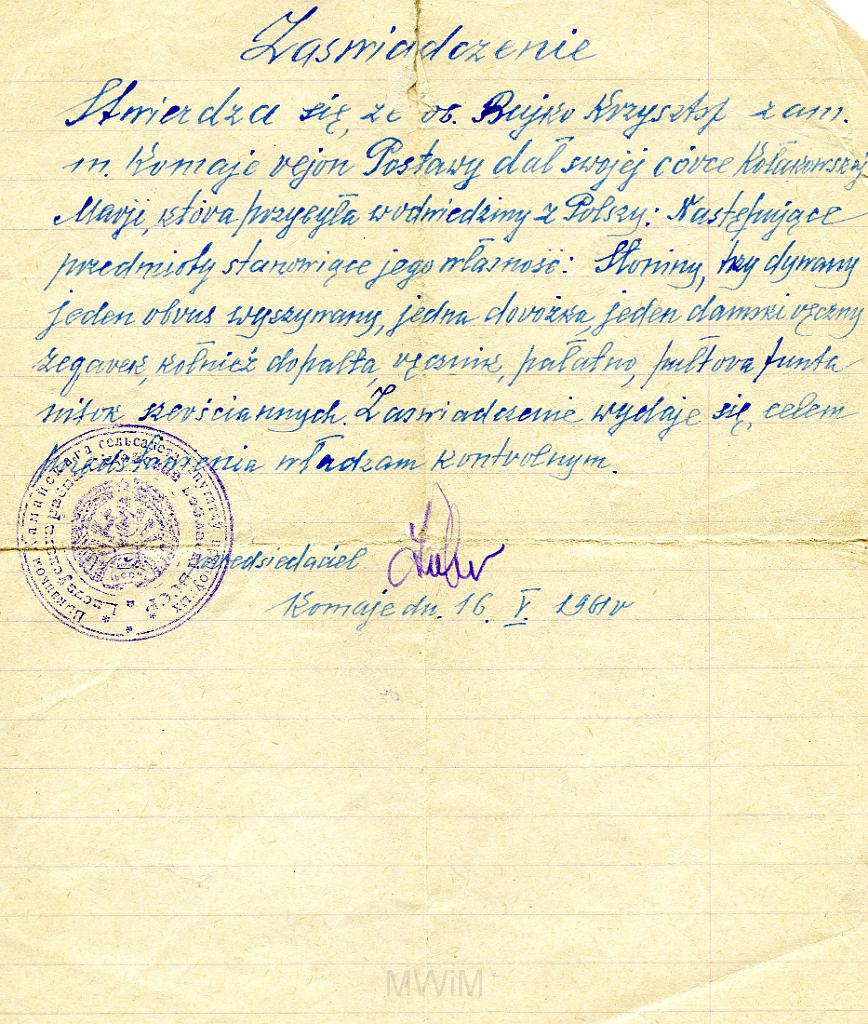 Zaswiadczenie
Stwierdza się, że ob. Bujko Krzysztof zam.
m. Komaje rejon Postawy dał swojej córce Kołakowskiej
Marji, która przybyła w odwiedziny z Polszy: Następujące
przedmioty stanowiące jego własność: Słoniny, trzy dywany
jeden obrus wyszywany, jedna dorożka, jeden damski ręczny
zegarek, kołnież do palta, ręcznik, płatno, pułtora funta
nitok szerściannych. Zaswiadczenie wydaje się, celem
przedstawienia władzam kontrolnym.
predsiedaciel
Komaje dn. 16. V. 1961 r
MWiM